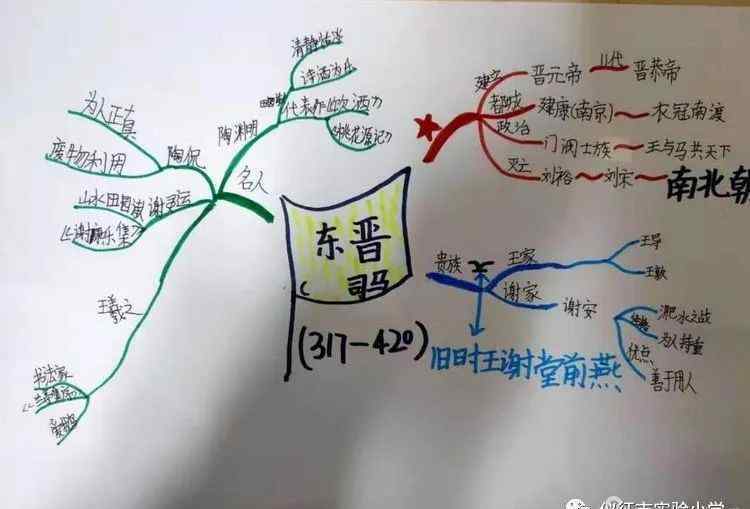 东晋
司马
(317-420)
名人
陶渊明
清静恬淡
诗酒为乐
代表作《饮酒》
《桃花源记》
陶侃
为人正直
废物利用
谢灵运
山水田园派
《谢康乐集》
王羲之
书法家
建立
晋元帝
11代
晋恭帝
都城
建康(南京)
衣冠南渡
政治
门阀士族
王与马共天下
灭亡
刘裕
刘宋
南北朝
贵族
王家
王导
王敦
谢家
谢安
淝水之战
优点
为人持重
善于用人
旧时王谢堂前燕
仪征市实验小学